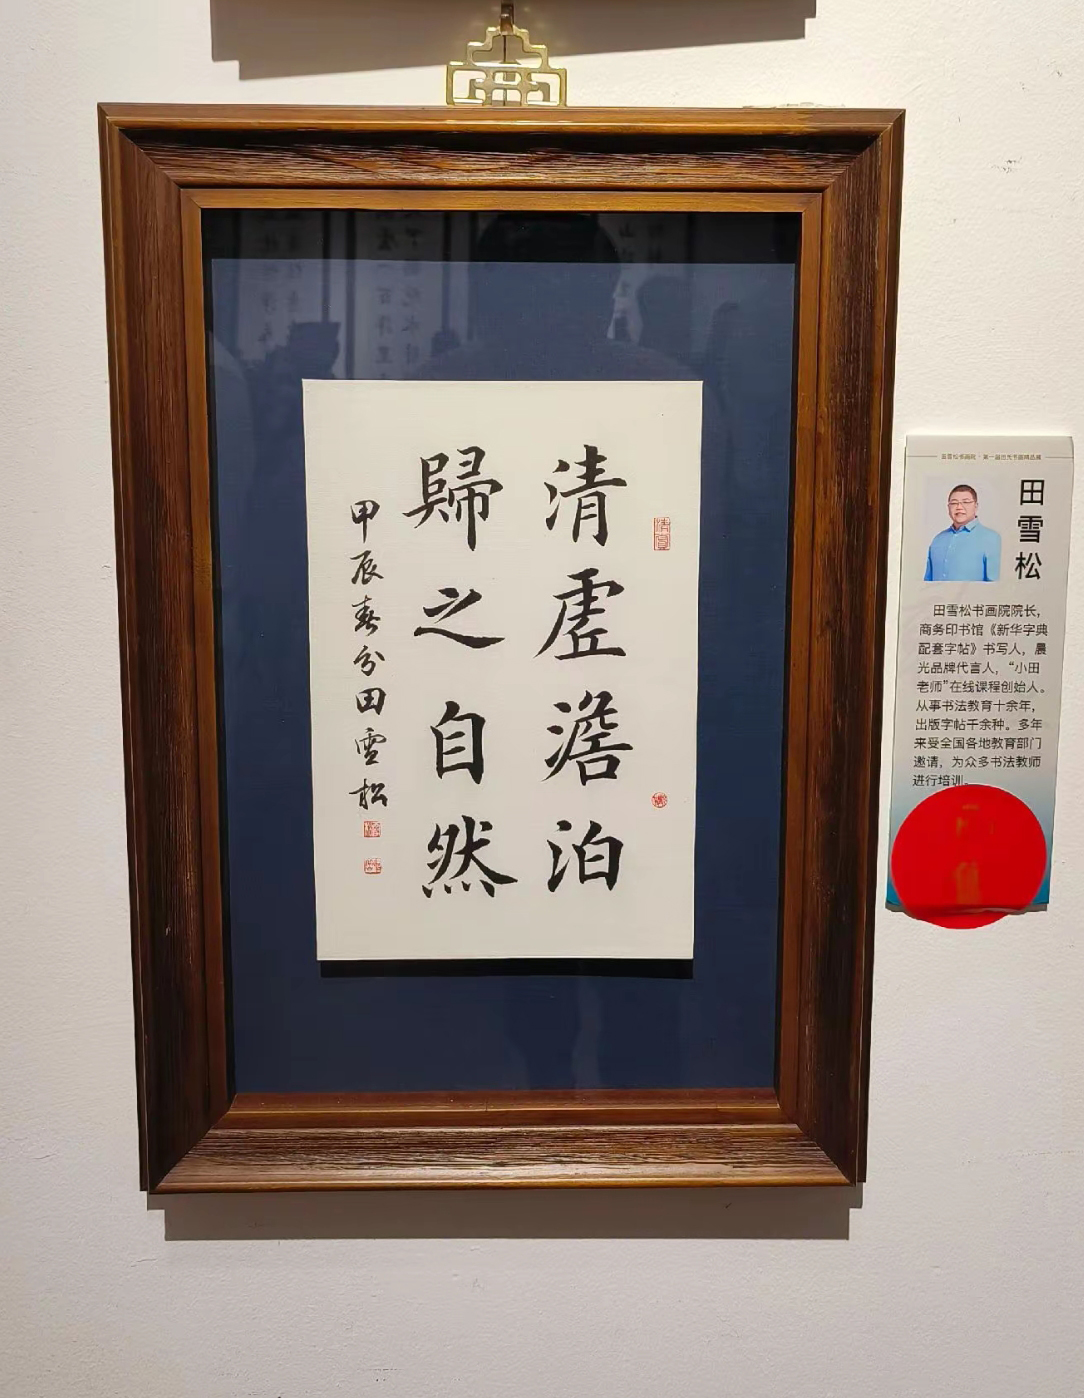 清虚澹泊
歸之自然
甲辰春分田雪松
田雪松书画院·第一届优秀书画精品展
田雪松
田雪松书画院院长，
商务印书馆《新华字典
配套字帖》书写人，晨
光品牌代言人，“小田
老师”在线课程创始人。
从事书法教育十余年，
出版字帖千余种。多年
来受全国各地教育部门
邀请，为众多书法教师
进行培训。